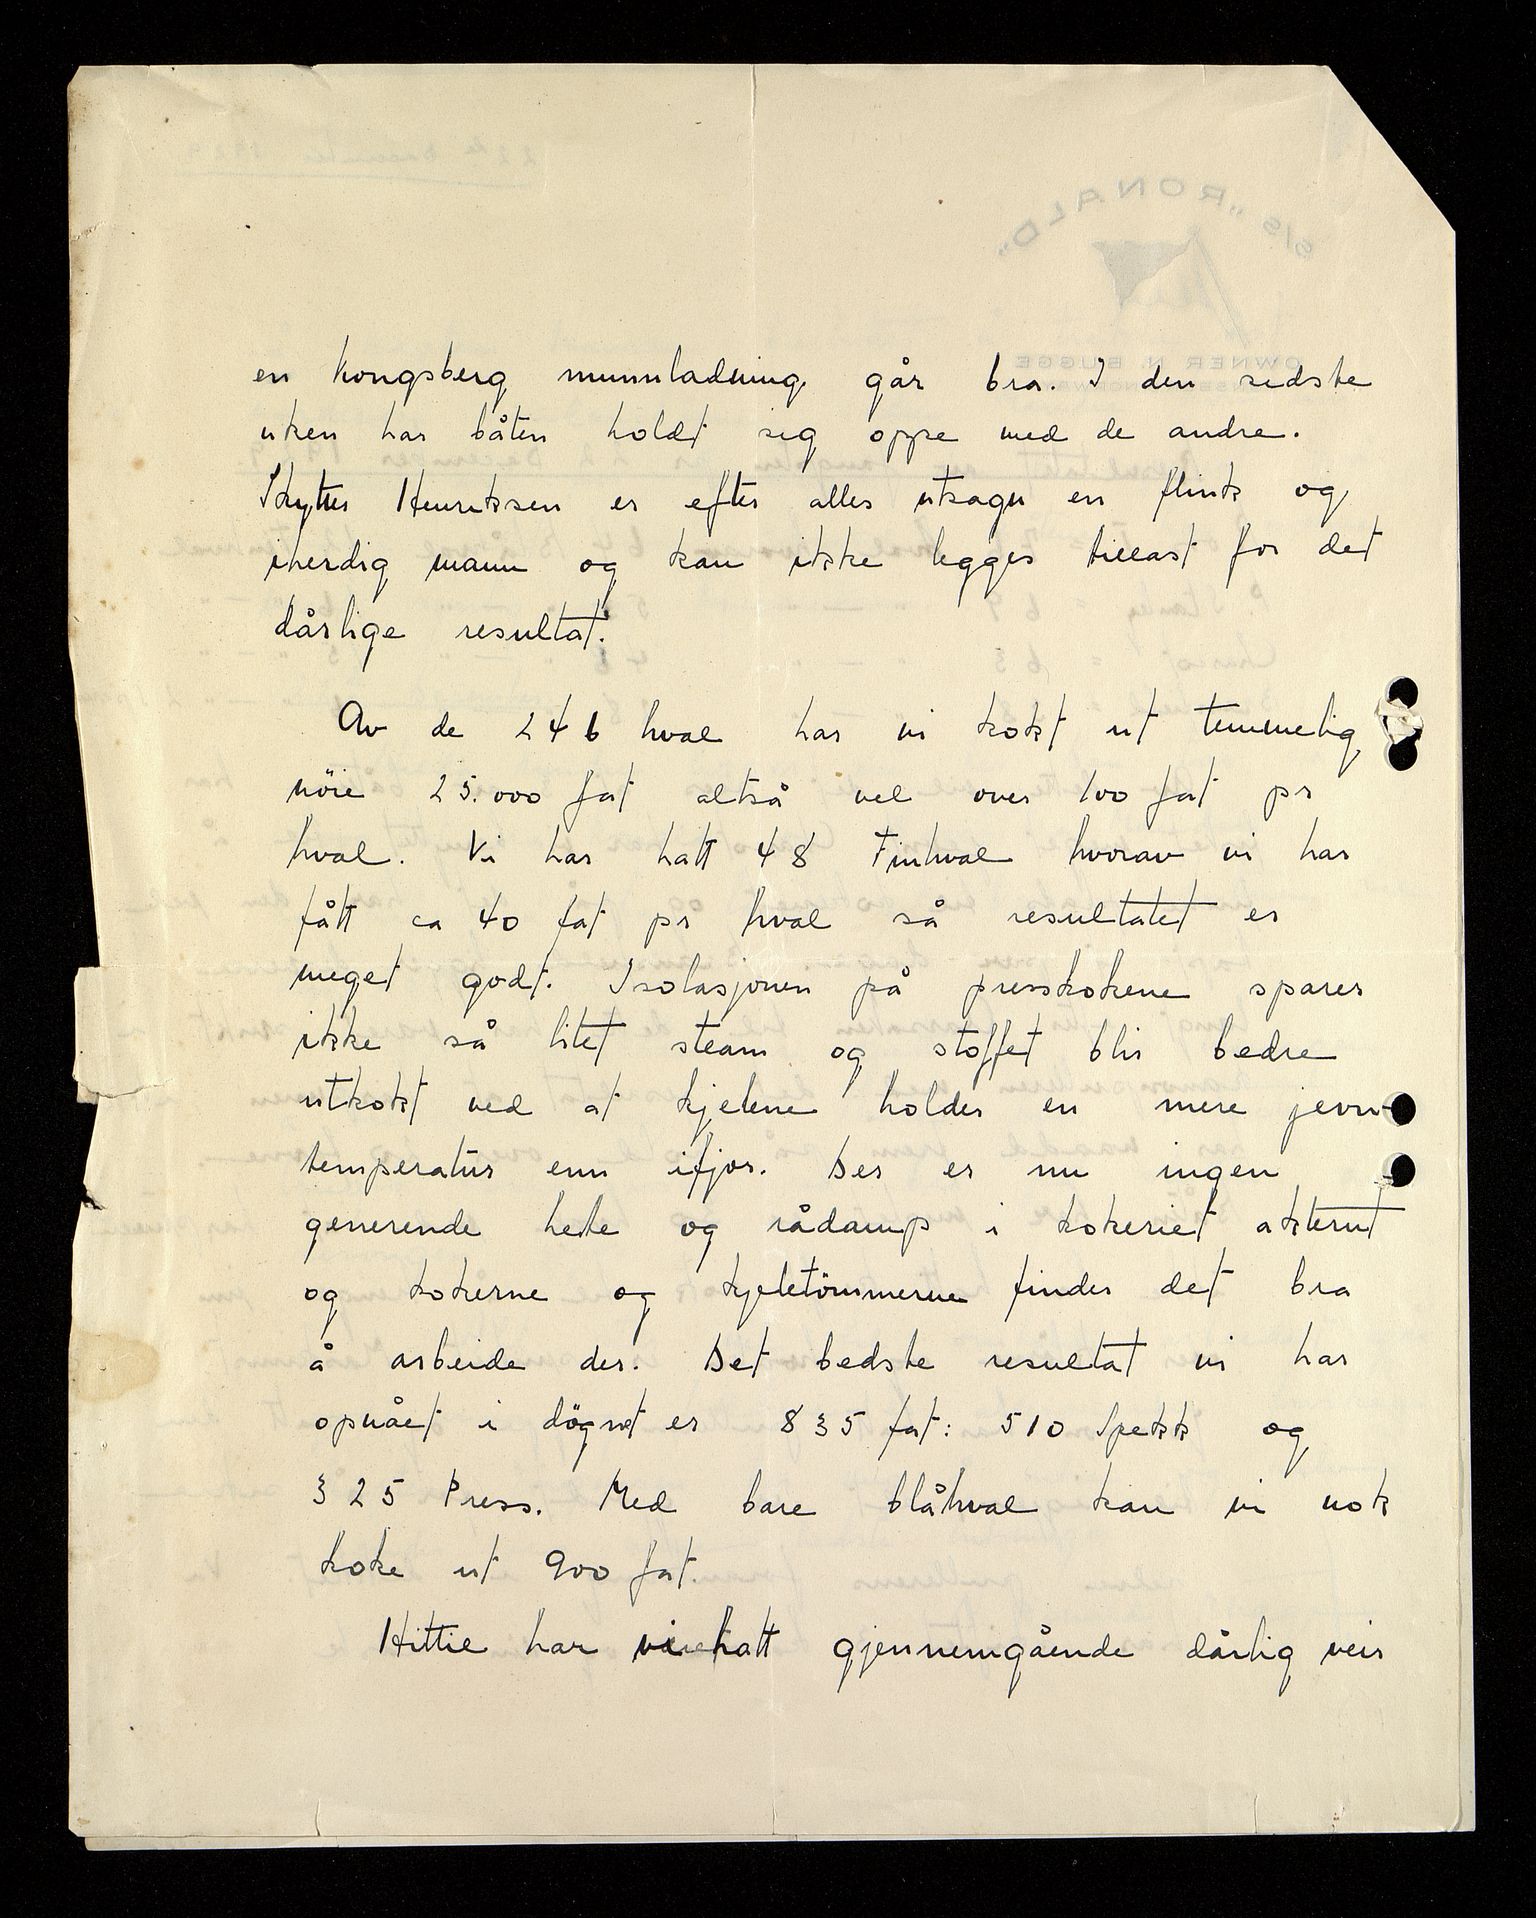 en Kongsberg munnladning går bra. I den sidste
uken har båten holdt sig oppe med de andre.
Skytter Henriksen er efter alles utsagn en flink og
iherdig mann og kan ikke legges tillast for det
dårlige resultat.
Av de 246 hval har vi kokt ut temmelig
nöie 25.000 fat altså vel over 100 fat pr
hval. Vi har hatt 48 Finhval hvorav vi har
fått ca 40 fat pr hval så resultatet er
meget godt. Isolasjonen på presskokene sparer
ikke så litet steam og stoffet blir bedre
utkokt ved at kjelene holder en mere jevn
temperatur enn ifjor. Der er nu ingen
generende hete og rådamp i kokeriet akterut
og kokerne og kjeletömmerne finder det bra
å arbeide der. Det bedste resultat vi har
opnået i dögnet er 835 fat: 510 Spekk og
325 Press. Med bare blåhval kan vi nok
koke ut 900 fat.
Hittil har vi hatt gjennemgående dårlig veir
S/S "RONALD"
OWNER N. BUGGE